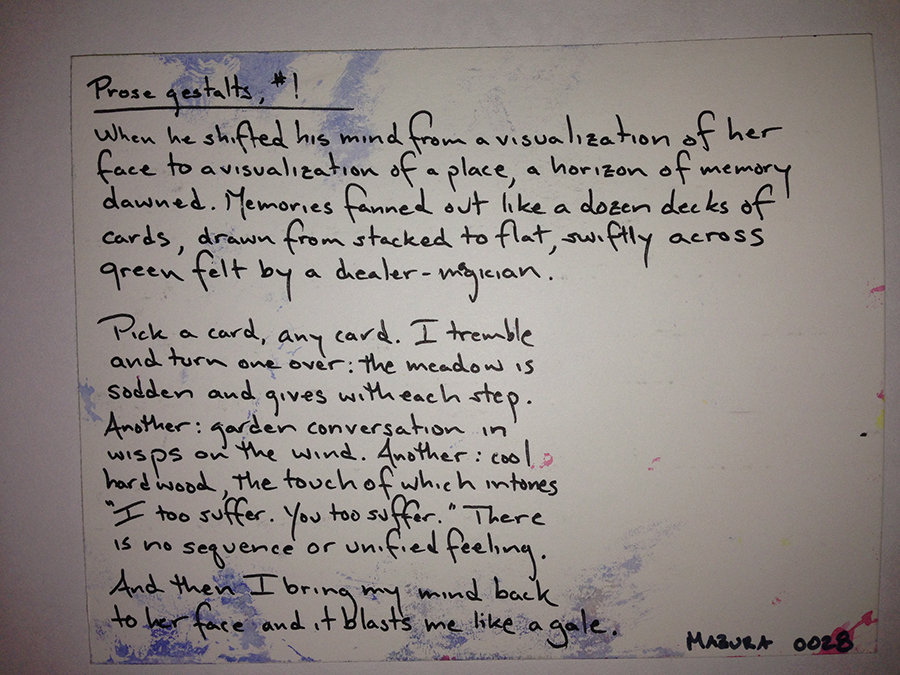 Prose gestalts, #1
When he shifted his mind from a visualization of her
face to a visualization of a place, a horizon of memory
dawned. Memories fanned out like a dozen decks of
cards, drawn from stacked to flat, swiftly across
green felt by a dealer-magician.
Pick a card, any card. I tremble
and turn one over: the meadow is
sodden and gives with each step.
Another: garden conversation in
wisps on the wind. Another: cool
hardwood, the touch of which intones
"I too suffer. You too suffer." There
is no sequence or unified feeling.
And then I bring my mind back
to her face and it blasts me like a gale.
MAZURA 0028